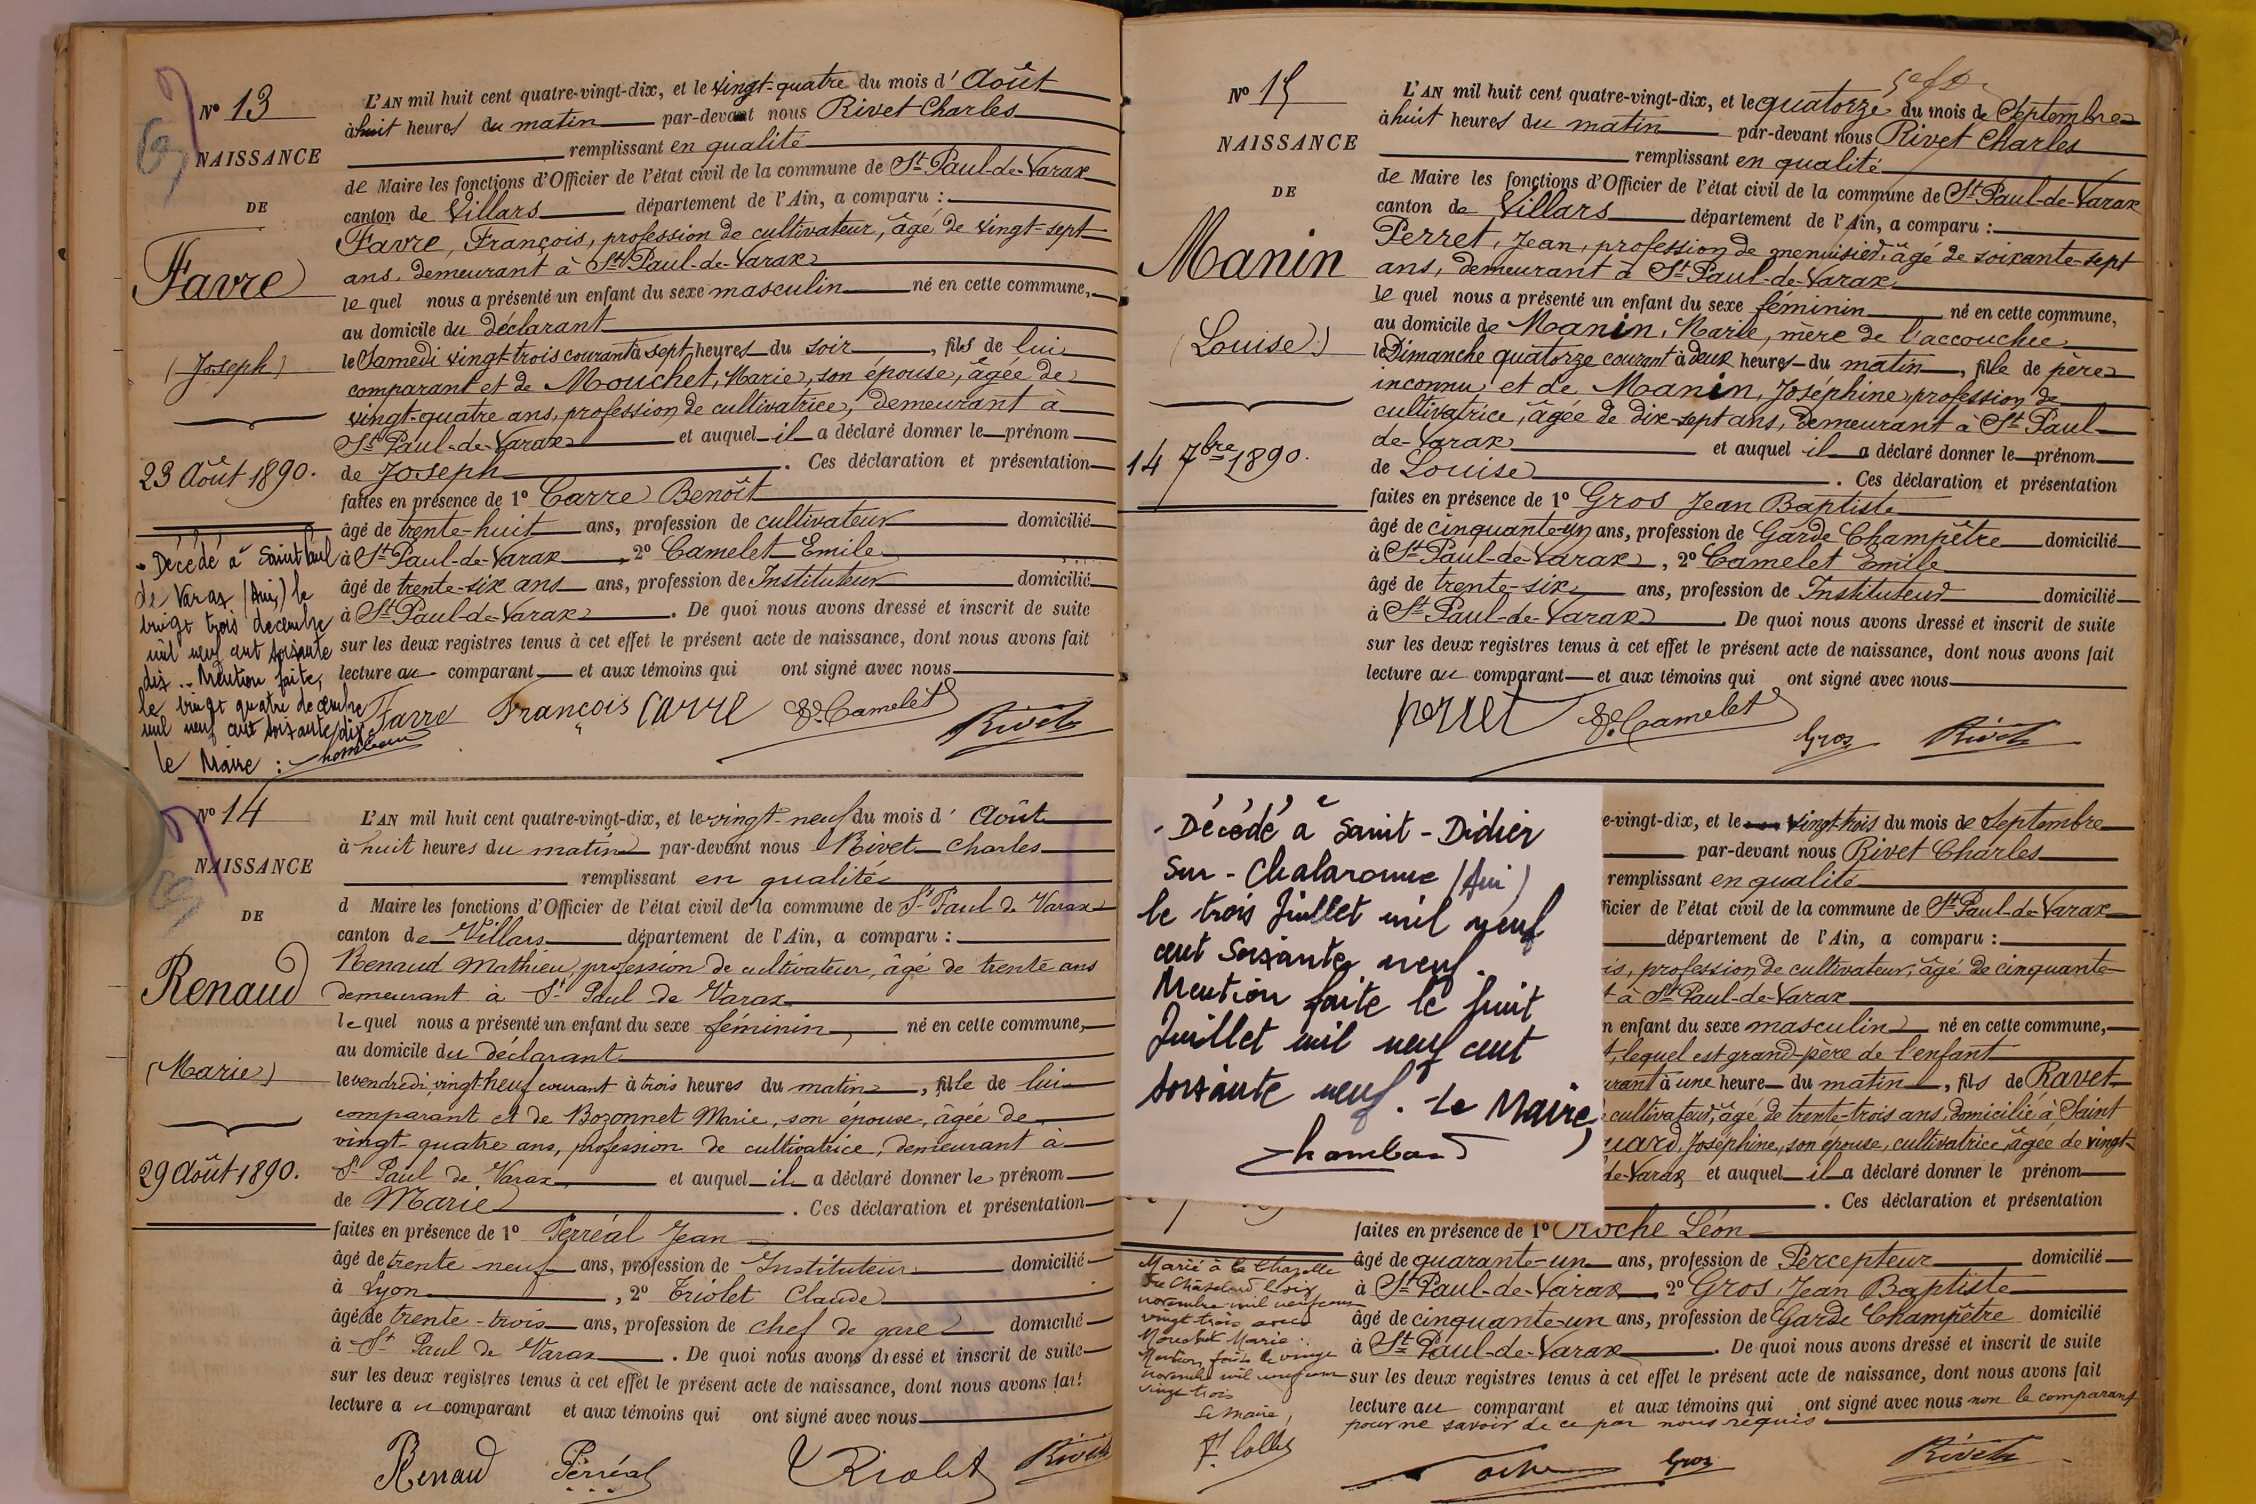 N° 13
NAISSANCE
DE
Favre
(Joseph)
23 Août 1890.
Décédé à Saint Paul
de Varax (Ain) le
vingt trois décembre
mil neuf cent soixante
dix. Mention faite,
le vingt quatre décembre
mil neuf cent soixante dix.
le Maire :
L'AN mil huit cent quatre-vingt-dix, et le vingt-quatre du mois d'Août
à huit heures du matin par-devant nous Rivet Charles
remplissant en qualité
de Maire les fonctions d'Officier de l'état civil de la commune de St Paul-de-Varax
canton de Villars département de l'Ain, a comparu :
Favre, François, profession de cultivateur, âgé de vingt-sept
ans, demeurant à St Paul-de-Varax
le quel nous a présenté un enfant du sexe masculin né en cette commune,
au domicile du déclarant
le Samedi vingt-trois courant à sept heures du soir, fils de lui
comparant et de Mouchet, Marie, son épouse, âgée de
vingt-quatre ans, profession de cultivatrice, demeurant à
St Paul-de-Varax et auquel il a déclaré donner le prénom
de Joseph. Ces déclaration et présentation
faites en présence de 1° Carre Benoît
âgé de trente-huit ans, profession de cultivateur domicilié
à St Paul-de-Varax, 2° Camelet Emile
âgé de trente-six ans ans, profession de Instituteur domicilié
à St Paul-de-Varax. De quoi nous avons dressé et inscrit de suite
sur les deux registres tenus à cet effet le présent acte de naissance, dont nous avons fait
lecture au comparant et aux témoins qui ont signé avec nous
Favre François Carre E. Camelet Rivet
N° 14
NAISSANCE
DE
Renaud
(Marie)
29 Août 1890.
L'AN mil huit cent quatre-vingt-dix, et le vingt-neuf du mois d'Août
à huit heures du matin par-devant nous Rivet Charles
remplissant en qualité
d Maire les fonctions d'Officier de l'état civil de la commune de St Paul de Varax
canton de Villars département de l'Ain, a comparu :
Renaud Mathieu, profession de cultivateur, âgé de trente ans
demeurant à St Paul de Varax
le quel nous a présenté un enfant du sexe féminin, né en cette commune,
au domicile du déclarant
le vendredi vingt-neuf courant à trois heures du matin, fille de lui
comparant et de Bozonnet Marie, son épouse, âgée de
vingt quatre ans, profession de cultivatrice, demeurant à
St Paul de Varax et auquel il a déclaré donner le prénom
de Marie. Ces déclaration et présentation
faites en présence de 1° Perréal Jean
âgé de trente-neuf ans, profession de Instituteur domicilié
à Lyon, 2° Triolet Claude
âgé de trente-trois ans, profession de chef de gare domicilié
à St Paul de Varax. De quoi nous avons dressé et inscrit de suite
sur les deux registres tenus à cet effet le présent acte de naissance, dont nous avons fait
lecture au comparant et aux témoins qui ont signé avec nous
Renaud Perréal Triolet Rivet
N° 15
NAISSANCE
DE
Manin
(Louise)
14 7bre 1890.
L'AN mil huit cent quatre-vingt-dix, et le quatorze du mois de Septembre
à huit heures du matin par-devant nous Rivet Charles
remplissant en qualité
de Maire les fonctions d'Officier de l'état civil de la commune de St Paul-de-Varax
canton de Villars département de l'Ain, a comparu :
Perret, Jean, profession de menuisier, âgé de soixante-sept
ans, demeurant à St Paul-de-Varax
le quel nous a présenté un enfant du sexe féminin né en cette commune,
au domicile de Manin, Marie, mère de l'accouchée
le Dimanche quatorze courant à deux heures du matin, fille de père
inconnu et de Manin, Joséphine, profession de
cultivatrice, âgée de dix-sept ans, demeurant à St Paul-
de-Varax et auquel il a déclaré donner le prénom
de Louise. Ces déclaration et présentation
faites en présence de 1° Gros Jean Baptiste
âgé de cinquante-un ans, profession de Garde Champêtre domicilié
à St Paul-de-Varax, 2° Camelet Emile
âgé de trente-six ans, profession de Instituteur domicilié
à St Paul-de-Varax. De quoi nous avons dressé et inscrit de suite
sur les deux registres tenus à cet effet le présent acte de naissance, dont nous avons fait
lecture au comparant et aux témoins qui ont signé avec nous
Perret E. Camelet Gros Rivet
Décédé à Saint-Didier
sur-Chalaronne (Ain)
le trois Juillet mil neuf
cent soixante neuf.
Mention faite le huit
Juillet mil neuf cent
soixante neuf. Le Maire,
e-vingt-dix, et le vingt-trois du mois de Septembre
par-devant nous Rivet Charles
remplissant en qualité
ficier de l'état civil de la commune de St Paul-de-Varax
département de l'Ain, a comparu :
is, profession de cultivateur, âgé de cinquante-
t à St Paul-de-Varax
n enfant du sexe masculin né en cette commune,
t, lequel est grand-père de l'enfant
urant à une heure du matin, fils de Ravet
cultivateur, âgé de trente-trois ans, domicilié à Saint
uard, Joséphine, son épouse, cultivatrice, âgée de vingt-
de-Varax et auquel il a déclaré donner le prénom
. Ces déclaration et présentation
faites en présence de 1° Roche Léon
âgé de quarante-un ans, profession de Percepteur domicilié
à St Paul-de-Varax, 2° Gros, Jean Baptiste
âgé de cinquante-un ans, profession de Garde Champêtre domicilié
à St Paul-de-Varax. De quoi nous avons dressé et inscrit de suite
sur les deux registres tenus à cet effet le présent acte de naissance, dont nous avons fait
lecture au comparant et aux témoins qui ont signé avec nous non le comparant
pour ne savoir de ce par nous requis
Marié à la Chapelle
du Châtelard le six
novembre mil neuf cent
vingt trois avec
Mouchet Marie.
Mention faite le vingt
novembre mil neuf cent
vingt trois
Le Maire,
Roche Gros Rivet